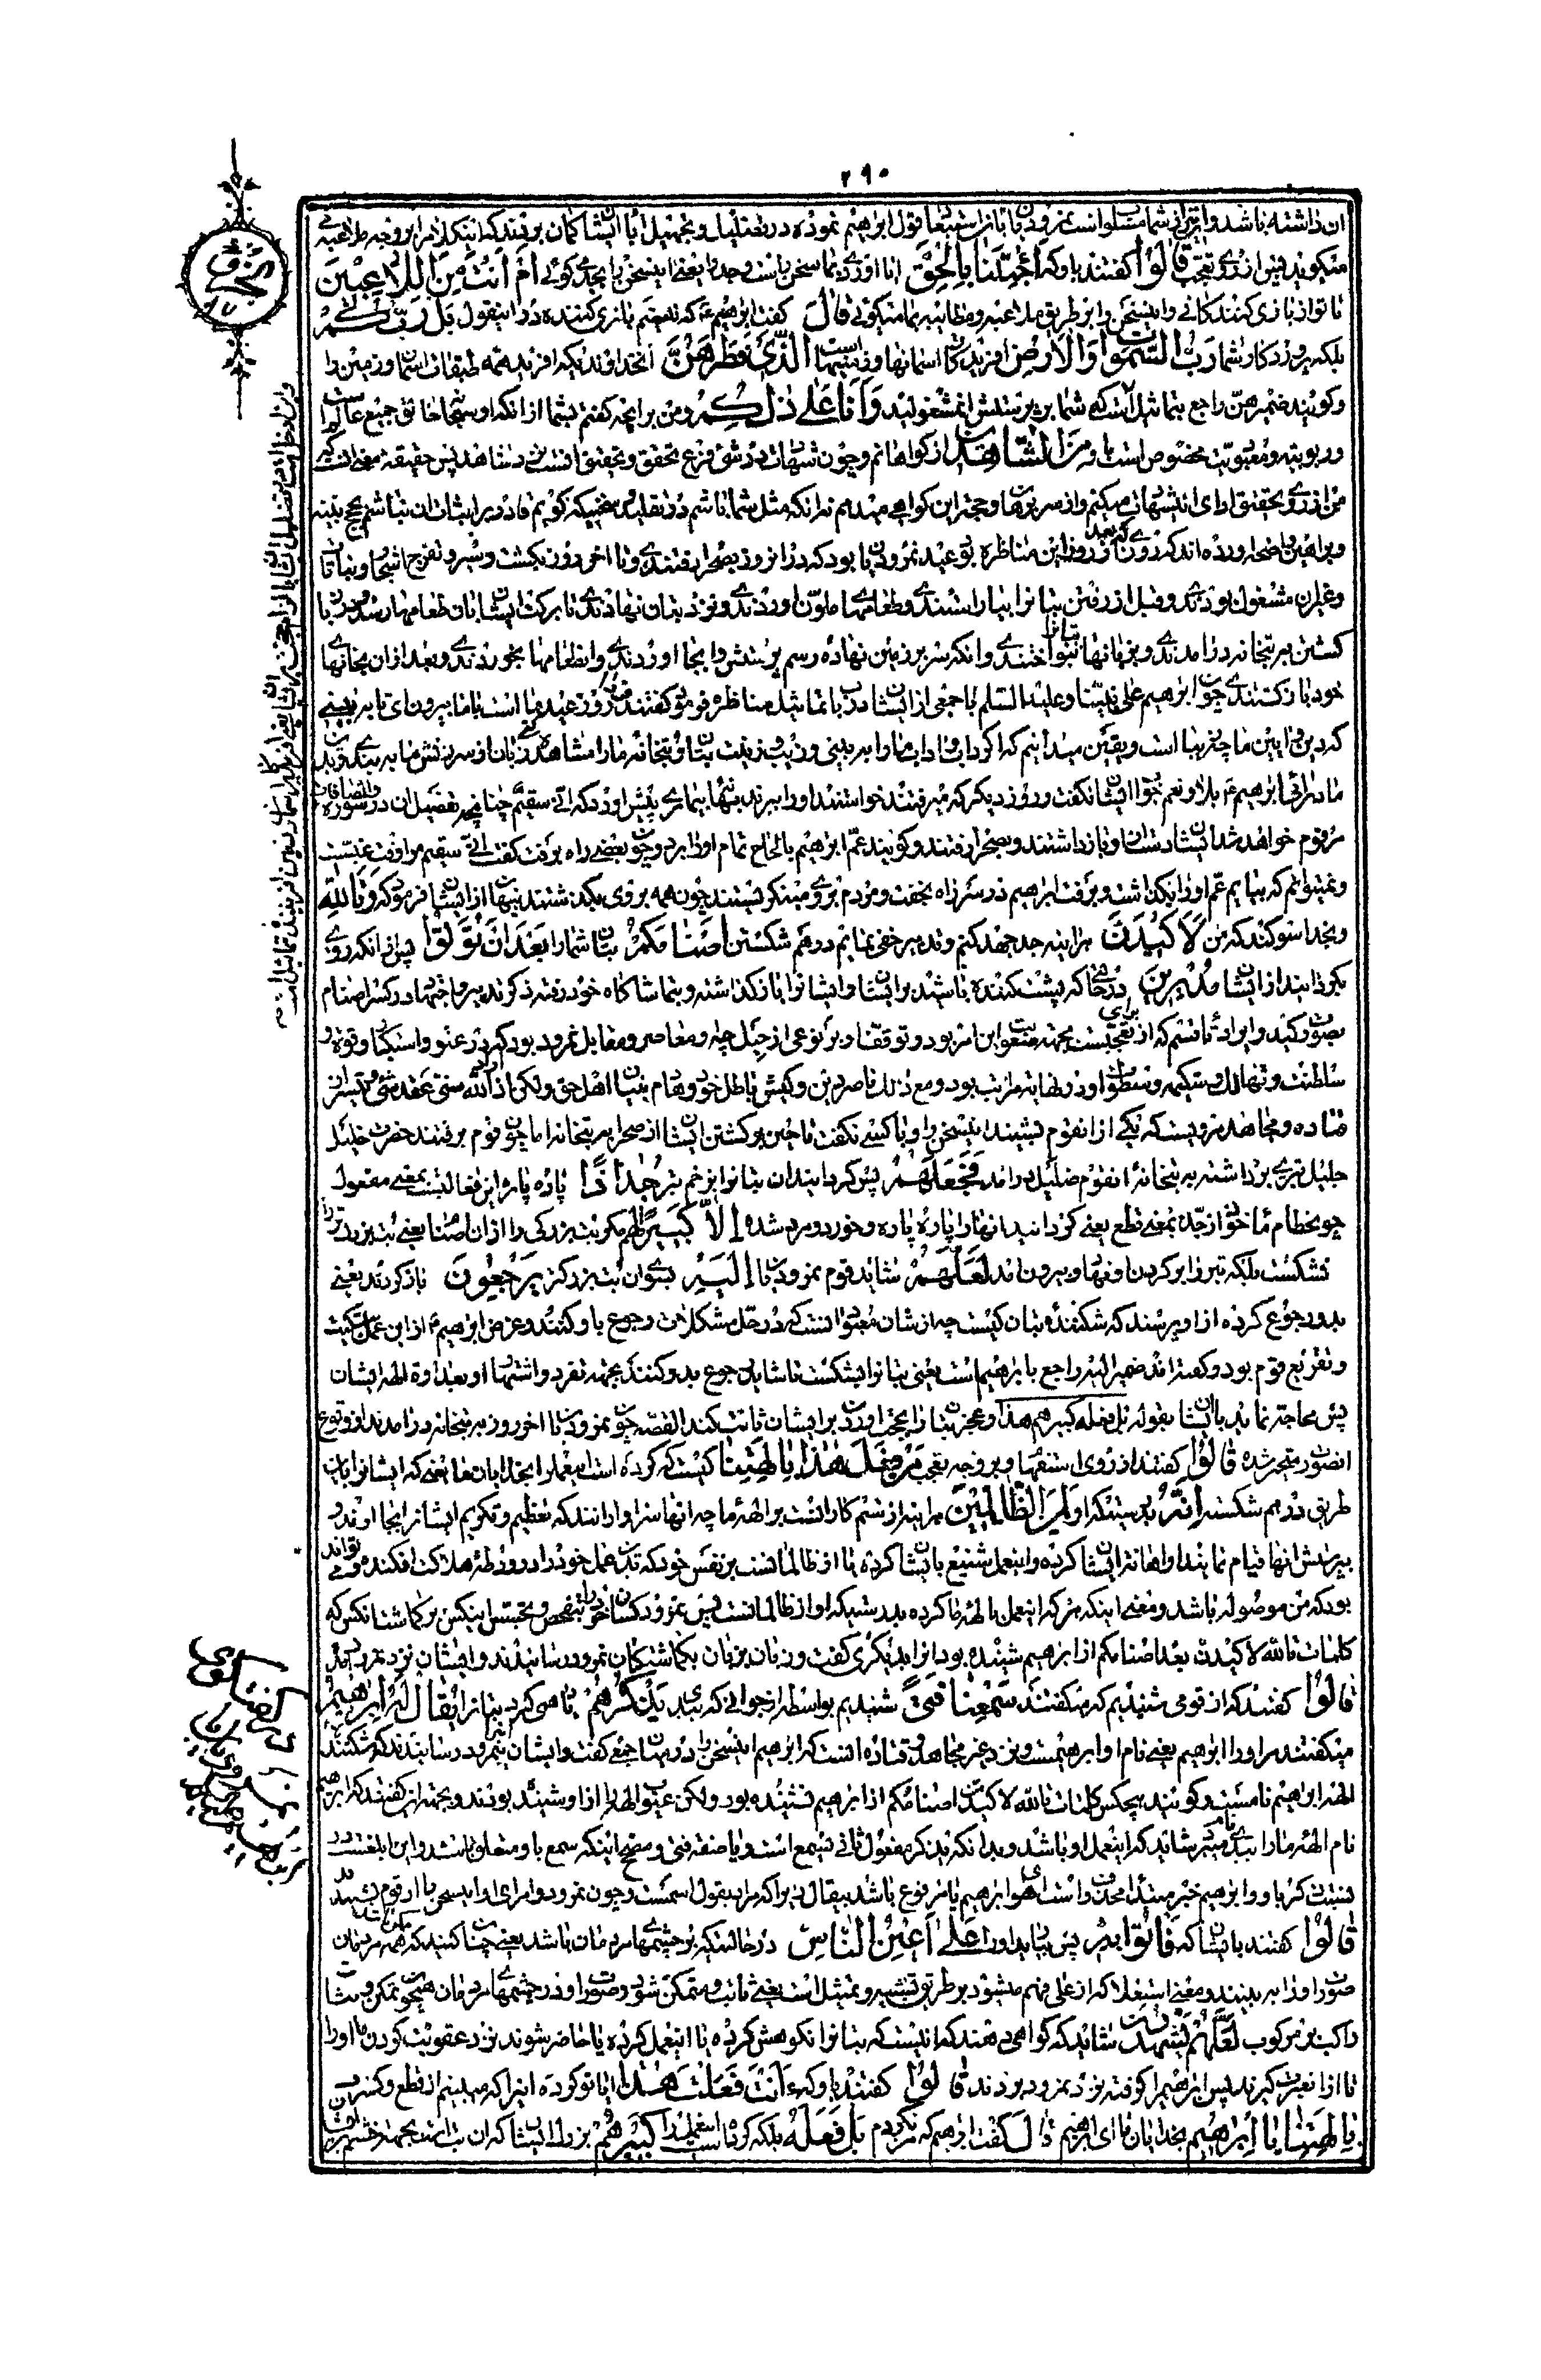 ۲۹۰
الجزء ۱۷
ان داشته باشد و این از شما مسلوبست نمرودیان باز استبعاد قول ابرهیم نموده در تضلیل و تجهیل آبا ایشان گمان بردند که اینکار را بر وجه ملاعبه
میگوید پس از روی تعجب قَالُوا گفتند باو که أَجِئْتَنَا بِالْحَقِّ ایا اوردی بما سخن راست و جد را یعنی اینسخن را بجد می گوئی أَمْ أَنْتَ مِنَ اللَّاعِبِينَ
یا تو از بازی کنندگانی و اینسخن را بر طریق ملاعبه و مطایبه بما میگوئی قَالَ گفت ابرهیم ع که نیستم بازی کننده در اینقول بَلْ رَبُّكُمْ
بلکه پروردکار شما رَبُّ السَّمٰوَاتِ وَالْأَرْضِ افریدکار اسمانها و زمینها است الَّذِي فَطَرَهُنَّ انخداوندیکه افریده همه طبقات اسمان و زمین را
و گویند ضمیر هن راجع بتماثیل است که شما بپرستش ان مشغولید وَأَنَا عَلَى ذٰلِكُمْ و من بر انچه گفتم بشما از انکه او سبحانه خالق جمیع عالم است
و ربوبیة و معبودیت مخصوص است باو مِنَ الشَّاهِدِينَ از گواهانم و چون شهادت در شئ فرع تحقق و تحقیق انست پس حقیقة معنی انست که
من از روی تحقیق ادای اینشهادت میکنم و از سر برهان و حجة این گواهی میدهم نه انکه مثل شما باشم در تقلید
و براهین واضحه اورده اند که روز این مناظره عید نمرودیان بود که در انروز بصحرا رفتندی و تا اخر روز بگشت و سیر و تفرج اشجار و نباتات
و غیر ان مشغول بودندی و قبل از رفتن بتانرا بیاراستندی و طعامهای ملون اوردندی و نزد بتان نهادندی تا برکت ایشان بان طعامها رسد
گشتن به بتخانه در امدندی و بزبانها بتانرا بنواختندی و انکه سر بر زمین نهاده رسم پرستش را بجا اوردندی و انطعامها بخوردندی و بعد از ان بخانهای
خود باز گشتندی چون ابرهیم علی نبینا و علیه السلم با جمعی از ایشان در باب تماثیل مناظره فرمود گفتند فردا روز عید ما است با ما بیرون ای تا به بینی
که دین و ایین ما چه زیبا است و یقین میدانیم که اگر داب و اداب ما را به بینی و زیب و زینت بتان و بتخانه ما را مشاهده کنی زبان از سرزنش ما
ابرهیم ع بلا و نعم جواب ایشان نگفت و روز دیگر که میرفتند خواستند او را ببرند بیماری پیش اورد که انی سقیم چنانچه تفصیل ان در سوره والصافات
مرقوم خواهد شد ایشان دست از او باز داشتند و بصحرا رفتند و گویند عم ابرهیم بالحاح تمام او را برد و چون بعضی راه برفت گفت انی سقیم
و نمیتوانم که بیایم عم او را بگذاشت و برفت ابرهیم در سر راه بخفت و مردم بر وی میگذشتند چون همه بر وی بگذشتند پنهان از ایشان فرمود که وَتَاللَّهِ
و بخدا سوگند که من لَأَكِيدَنَّ هر اینه جد و جهد کنم و تدبیر خفی نمایم در هم شکستن أَصْنَامَكُمْ بتان شما را بَعْدَ أَنْ تُوَلُّوا پس از انکه روی
بگردانید از ایشان مُدْبِرِينَ در حالتی که پشت کننده باشید بر ایشان و ایشانرا باز گذاشته و بتماشاگاه خود رفته ذکر تدبیر و اجتهاد در کسر اصنام
بصورت کید و ایراد تا قسم که از برای تعجبست بجهة صعوبت این امر بود و توقف او بر نوعی از حیل چه معاصر و مقابل نمرود بود که در عتو و استکبار و قوة
سلطنت و تهالک و شکیمه و سطوت او در نهایة مراتب بود و مع ذلک ناصر دین و کیش باطل خود و هادم بنیان اهل حق ولکن اذا الله سنی عقد شئ تیسرا از
قتاده و مجاهد مرویست که یکی از انقوم شنید اینسخن را و با کسی نگفت تا حین برگشتن ایشان از صحرا به بتخانه اما چون قوم برفتند حضرت خلیل
جلیل تبری برداشته به بتخانهٔ انقوم ضلیل درامد فَجَعَلَهُمْ پس گردانید ان بتانرا بزخم تبر جُذَاذًا پاره پاره این فعالیست بمعنی مفعول
چو حطام ماخوذ از جذ بمعنی قطع یعنی گردانید انها را پاره پاره و خورد و مرد شده إِلَّا كَبِيرًا لَهُمْ مگر بت بزرگی را از ان اصنام یعنی بت بزرگ را
نشکست بلکه تبر را بر گردن او نهاد و بیرون امد لَعَلَّهُمْ شاید قوم نمرودیان إِلَيْهِ بسوی ان بت بزرگتر يَرْجِعُونَ باز گردند یعنی
بدو رجوع کرده از او پرسند که شکنندهٔ بتان کیست چه از شان معبود انست که در حل مشکلات رجوع باو کنند و غرض ابرهیم ع از این عمل تبکیت
و تقریع قوم بود و گفته اند ضمیر الیه راجع بابرهیم است یعنی بتانرا بشکست تا شاید رجوع بدو کنند بجهة تفرد و اشتهار او بعداوة الهه ایشان
پس محاجه نماید با ایشان بقوله بل فعله کبیرهم هذا و عجز بتانرا بحجت اورده بر ایشان ثابت کند القصه چون نمرودیان اخر روز به بتخانه در امدند از وقوع
انصورت متحیر شده قَالُوا گفتند از روی استفهام و بر وجه تعجب مَنْ فَعَلَ هٰذَا بِآلِهَتِنَا کیست که کرده است اینعمل را بخدایان ما یعنی که ایشانرا باین
طریق در هم شکسته إِنَّهُ بدرستیکه او لَمِنَ الظَّالِمِينَ هر اینه از ستم کارانست بر الههٔ ما چه انها سزاوار انند که تعظیم و تکریم ایشانرا بجا اورند و
بپرستش انها قیام نمایند او اهانة ایشان کرده و اینعمل شنیع با ایشان کرده یا از ظالمانست بر نفس خود که بدین عمل خود را در ورطهٔ هلاکت افکنده و تواند
بود که من موصوله باشد و معنی اینکه هر که اینعمل بالههٔ ما کرده بدرستیکه او از ظالمانست پس نمرود کسان خود را بتفحص و تجسس اینکس بر گماشت انکس که
کلمات تالله لاکیدن اصنامکم از ابرهیم شنیده بود انرا بدیگری گفت و زبان بزبان بگماشتگان نمرود رسانیدند و ایشان نزد نمرود امده
قَالُوا گفتند که از قومی شنیدیم که میگفتند سَمِعْنَا فَتًى شنیدیم بواسطه از جوانی که ببدی يَذْكُرُهُمْ یاد می کرد بتانرا يُقَالُ لَهُ إِبْرٰهِيمُ
میگفتند مر او را ابرهیم یعنی نام او ابرهیمست و نزد غیر مجاهد و قتاده انست که ابرهیم اینسخن را در میان جمع گفت و ایشان بنمرود رسانیدند که شکنندهٔ
الهه ابرهیم نامست و گویند هیچکس کلمات تالله لاکیدن اصنامکم از ابرهیم نشنیده بود ولکن عیب الهه را از او شنیده بودند و بجهة این گفتند که ابرهیم
نام الههٔ ما را ببدی میبرد شاید که اینعمل او باشد و بدانکه یذکر مفعول ثانی سمع است و یا صفة فتی و مصحح اینکه سمع باو متعلق باشد و این ابلغست در
نسبت ذکر باو و ابرهیم خبر مبتدا محذوف است ای هو ابرهیم یا مرفوع باشد بیقال زیرا که مراد بقول اسمست و چون نمرود و امرای او اینسخن را از قوم شنیدند
قَالُوا گفتند با ایشان که فَأْتُوا بِهِ پس بیارید او را عَلَى أَعْيُنِ النَّاسِ در حالتیکه بر چشمهای مردمان باشد یعنی چنان کنید که همه مردمان
صورت او را به بینند و معنی استعلا که از علی فهم میشود بر طریق تشبیه و تمثیل است یعنی ثابت و متمکن شود صورت او در چشمهای مردمان همچو تمکن و ثبات
راکب بر مرکوب لَعَلَّهُمْ يَشْهَدُونَ شاید که گواهی دهند که انیست که بتانرا نکوهش کرده یا اینعمل کرده یا حاضر شوند نزد عقوبت کردن ما او را
تا از ان عبرت گیرند پس ابرهیم را گرفته نزد نمرود بردند قَالُوا گفتند باو که ءَأَنْتَ فَعَلْتَ هٰذَا ایا تو کرده این را که میبینیم از قطع و کسر
بِآلِهَتِنَا يَا إِبْرٰهِيمُ بخدایان ما ای ابرهیم قَالَ گفت ابرهیم که من نکردم بَلْ فَعَلَهُ بلکه کرده است اینعمل را كَبِيرُهُمْ بزرگ ایشان که ان بت است بجهة خشم